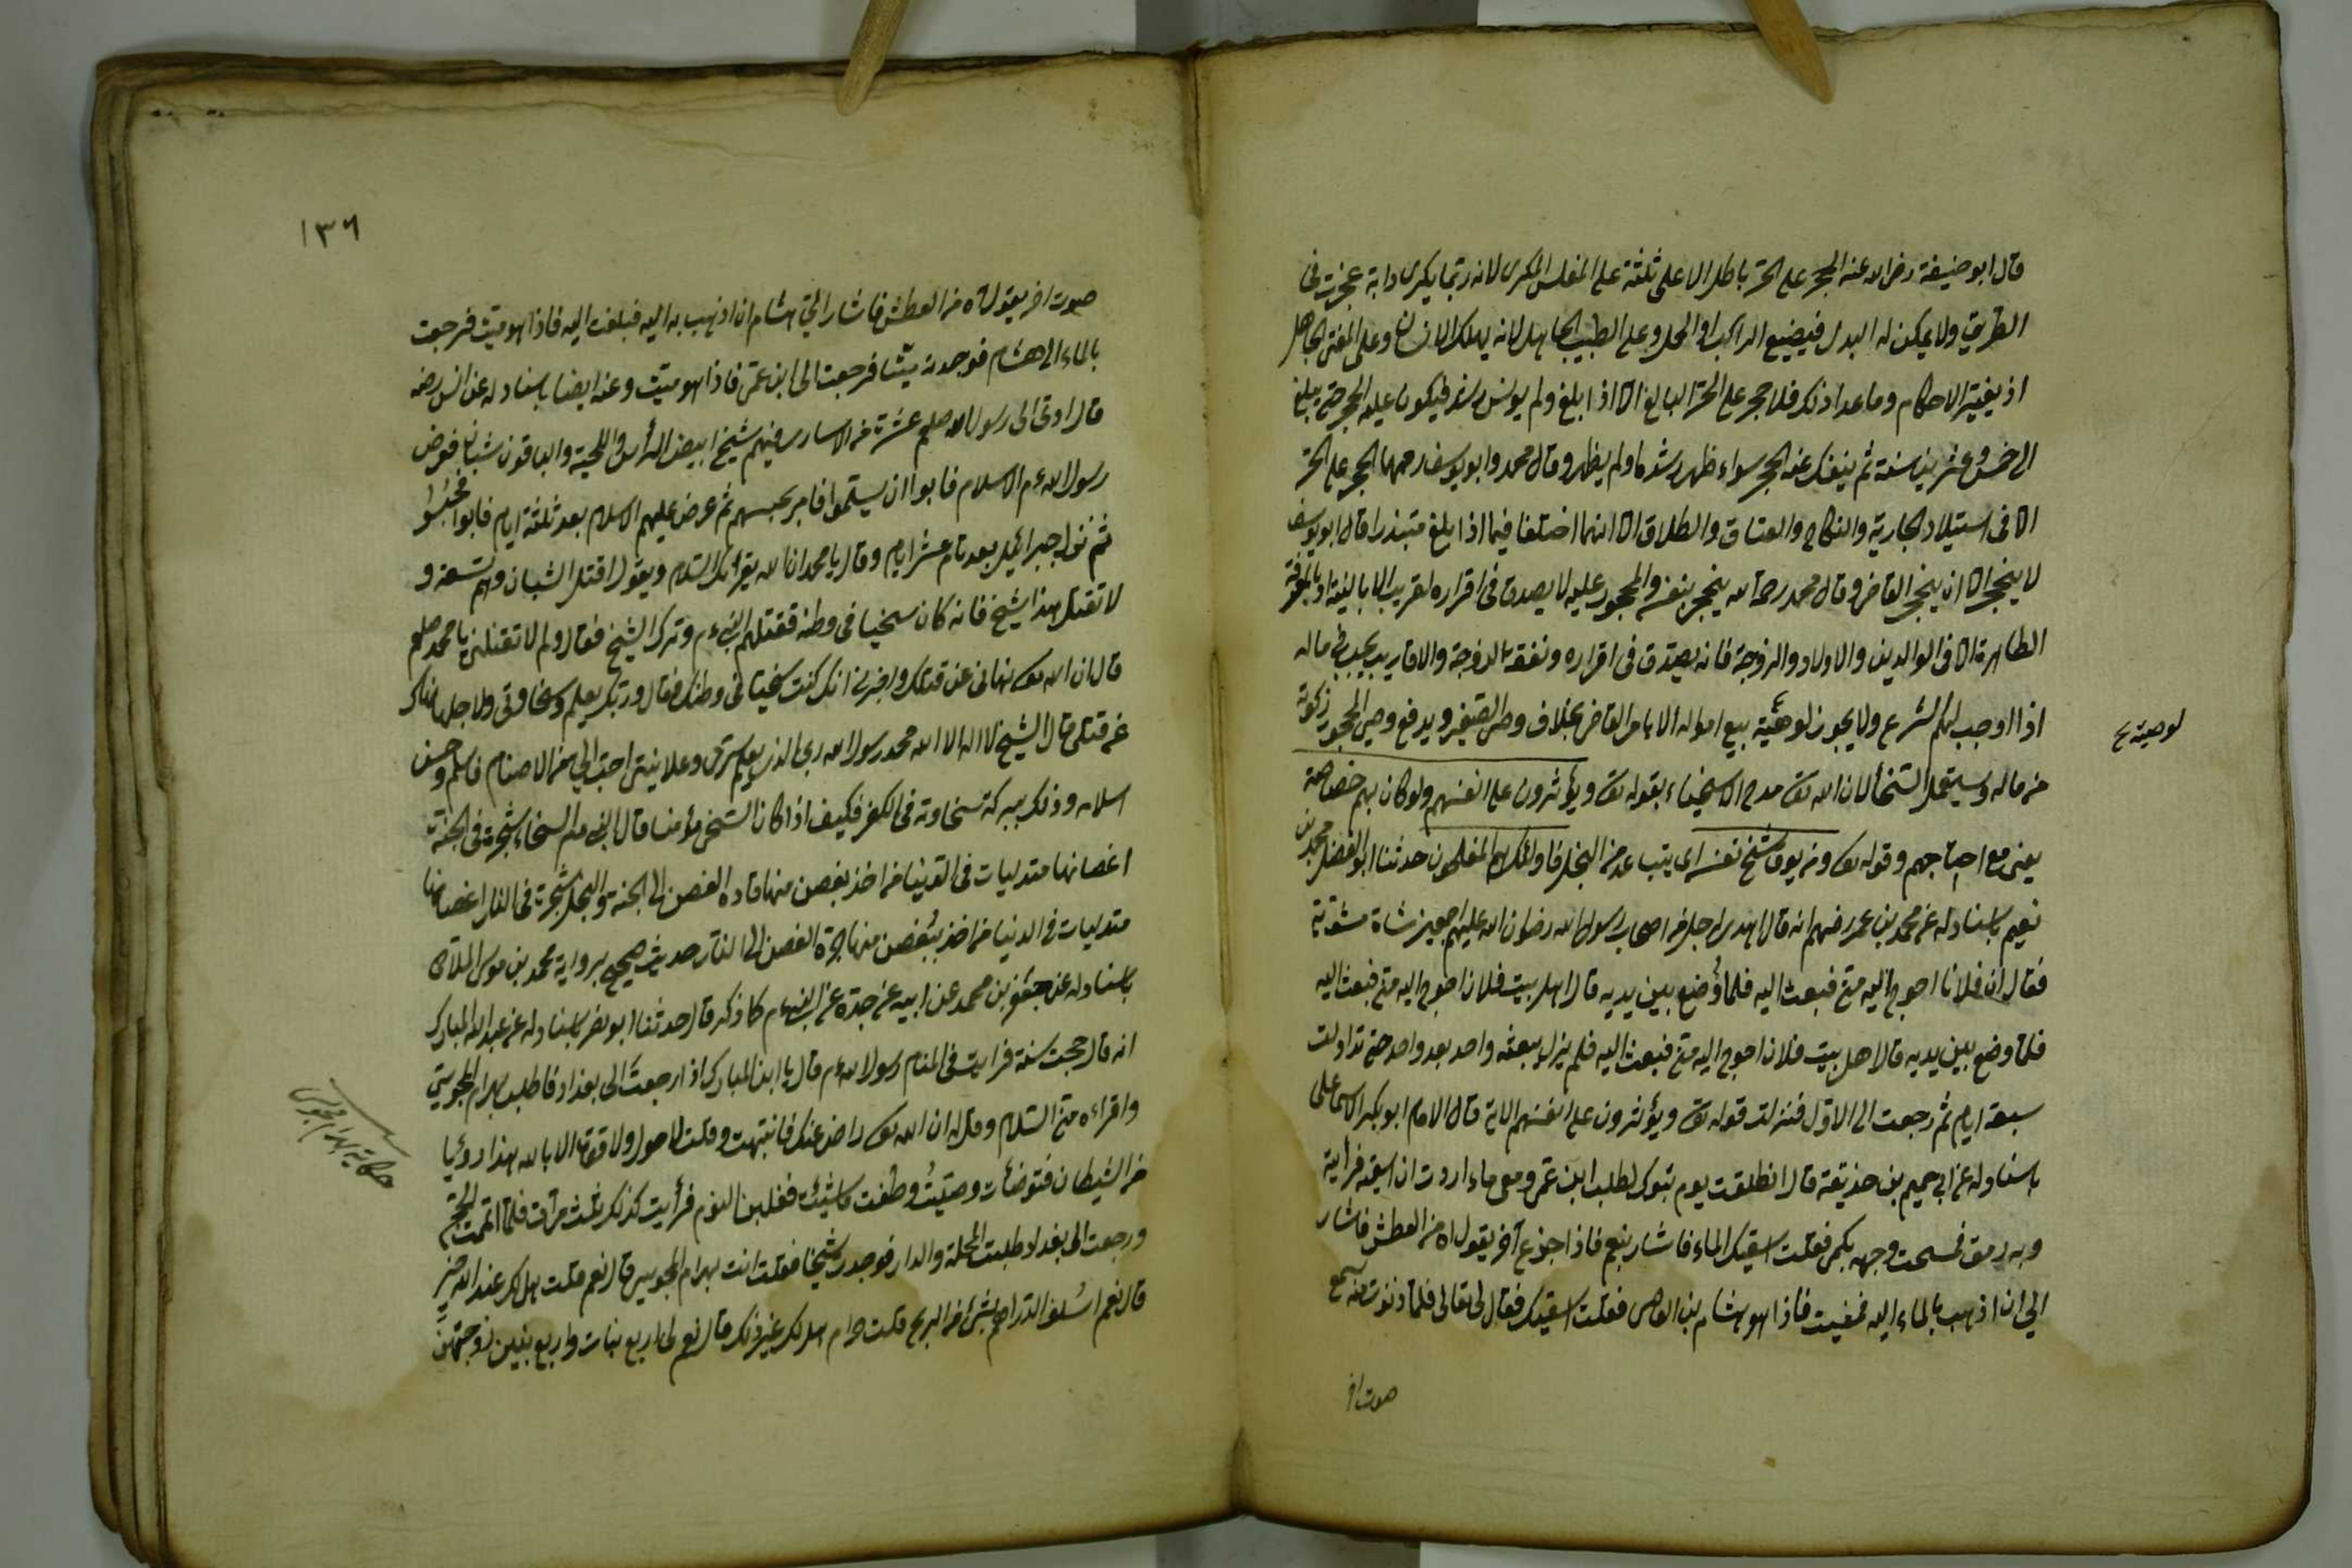 قال ابو حنيفة رضى الله عنه الحجر على الحر باطل الا على ثلثة على المفلس المكرى لانه ربما يكرى دابة عجزت فى
الطريق ولا يمكن له البدل فيضيع الراكب او الحمل وعلى الطبيب الجاهل لانه يهلك الانسان وعلى المفتى الجاهل
اذ يغير الاحكام وما عدا ذلك فلا حجر على الحر البالغ الا اذا بلغ ولم يونس رشد فيكون عليه الحجر حتى يبلغ
الى خمس وعشرين سنة ثم ينفك عنه الحجر سواء ظهر رشده او لم يظهر وقال محمد وابو يوسف رحمهما الحجر على الحر
الا فى استيلاد الجارية والنكاح والعتاق والطلاق الا انهما اختلفا فيما اذا بلغ مبتذرا قال ابو يوسف
لا ينحجر الا ان ينحجر القاضى وقال محمد رحمة الله ينحجر بنفسه والمحجور عليه لا يصدق فى اقراره لقريب الا بالبينة او بالمعرفة
الظاهرة الا فى الوالدين والاولاد والزوجة فانه يصدق فى اقراره ونفقة الزوجة والاقارب يجب فى ماله
اذا اوجب لهم الشرع ولا يجوز لوصية بيع امواله الا بامر القاضى بخلاف وصى الصغير ويدفع وصى المحجور زكوة
لوصيه صح
من ماله وسيقعد السخا لان الله تعالى مدح الاسخياء بقوله تعالى ويؤثرون على انفسهم ولو كان بهم خصاصة
يعنى مع احتياجهم وقوله تعالى ومن يوق شح نفسه اى يتب عد من البخل فاولئك هم المفلحون حدثنا ابو الفضل محمد بن
نعيم باسناد له عن محمد بن عمر رضهم انه قال اهدى لرجل من اصحاب رسول الله رضوان الله عليهم اجمعين شاة مشوية
فقال ان فلانا احوج اليه منى فبعث اليه فلما وضع بين يديه قال اهل بيت فلان احوج اليه منى فبعث اليه
فلما وضع بين يديه قال اهل بيت فلان احوج اليه منى فبعث اليه فلم يزل يبعثه واحد بعد واحد حتى تداولت
سبعة ايام ثم رجعت الى الاول فنزلت قوله تعالى ويؤثرون على انفسهم الاية قال الامام ابو بكر الاسماعلى
باسناد له عن ابى جهيم بن حذيفة قال انطلقت يوم تبوك لطلب ابن عمى ومعى ماء اردت ان اسقيه فرأيته
وبه رمق فمسحت وجهه بكمى فقلت اسقيك الماء فاشار بنعم فاذا جزع آخر يقول اه من العطش فاشار
الى ان اذهب بالماء اليه فمضيت فاذا هو هشام بن العاص فقلت اسقيك فقال لى تعالى فلما دنوت منه سمع
صوت اخر
١٣٦
صوت اخر يقول آه من العطش فاشار الى هشام ان اذهب به اليه فبلغت اليه فاذا هو ميت فرجعت
بالماء الى هشام فوجدته ميتا فرجعت الى ابن عمى فاذا هو ميت وعنه ايضا باسناد له عن انس رضه
قال اوتى الى رسول الله صلعم عشرة من الاسارى فيهم شيخ ابيض الرأس واللحية والباقون شبان فعرض
رسول الله عم الاسلام فابوا ان يسلموا فامر بحبسهم ثم عرض عليهم الاسلام بعد ثلثة ايام فابوا فحبسوا
ثم نزل جبرائيل بعد تمام عشر ايام وقال يا محمد ان الله يقرأك السلام ويقول اقتل الشبان وهم تسعة و
لا تقتل هذا الشيخ فانه كان سخيا فى وطنه فقتلهم النبى عم وترك الشيخ فقال ولم لا تقتلنى يا محمد صلعم
قال ان الله تعالى نهانى عن قتلك واخبرنى انك كنت سخيا فى وطنك فقال وربك يعلم وسخاوتى ولاجلها نهاك
عن قتلى قال الشيخ لا اله الا الله محمد رسول الله ربى الذى يعلم سرى وعلانيتى احب الى من الاصنام فاسلم وحسن
اسلامه وذلك ببركة سخاوته فى الكفر فكيف اذا كان السخى مؤمنا قال النبى عليه السلام السخاء شجرة فى الجنة
اغصانها متدليات فى الدنيا من اخذ بغصن منها قاده الغصن الى الجنة والبخل شجرة فى النار اغصانها
متدليات فى الدنيا من اخذ بغصن منها جره الغصن الى النار حديث صحيح برواية محمد بن موسى الملاقى
باسناد له عن جعفر بن محمد عن ابيه عن جده عن النبى عم كما ذكر قال حدثنا ابو نصر باسناد له عن عبد الله المبارك
انه قال حججت سنة فرايت فى المنام رسول الله عم قال يا ابن المبارك اذا رجعت الى بغداد فاطلب بهرام المجوسى
حكاية بهرام مجوسى
واقراءه منى السلام وقل له ان الله تعالى راض عنك فانتبهت وقلت لا حول ولا قوة الا بالله هذا رؤيا
من الشيطان فتوضأت وصليت وطفت ماشيئت فغلبنى النوم فرأيت كذلك ثلث مرات فلما اتممت الحج
ورجعت الى بغداد طلبت المحلة والدار فوجدت شيخا فقلت انت بهرام المجوسى قال نعم قلت هل لك عند الله خير
قال نعم اسلف الدراهم بشئ من الربح قلت حرام هل لك غير ذلك قال نعم لى اربع بنات واربع بنين زوجتهن